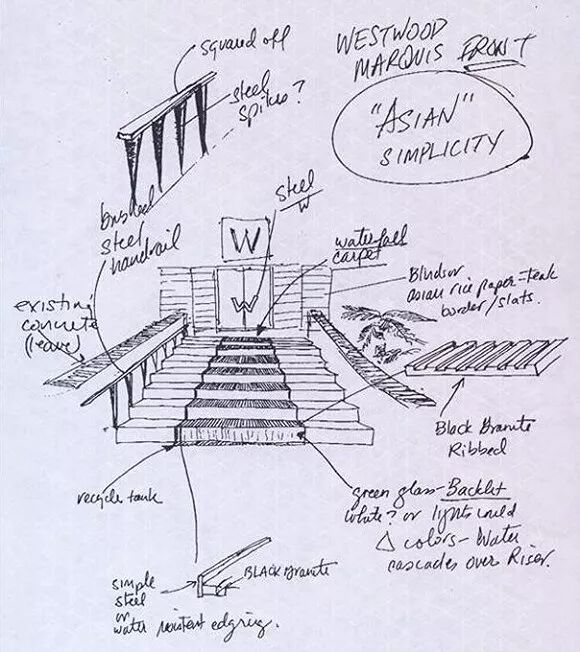 squared off
WESTWOOD
MARQUIS FRONT
steel
spikes?
"ASIAN"
SIMPLICITY
brushed
steel
handrail
steel
W
W
W
waterfall
carpet
Asian rice paper-teak
border/slats.
existing
concrete
(leave)
Black Granite
Ribbed
recycle tank
green glass-Backlit
white? or lights could
Δ colors-Water
cascades over Riser.
BLACK Granite
simple
steel
or
water resistent edging.